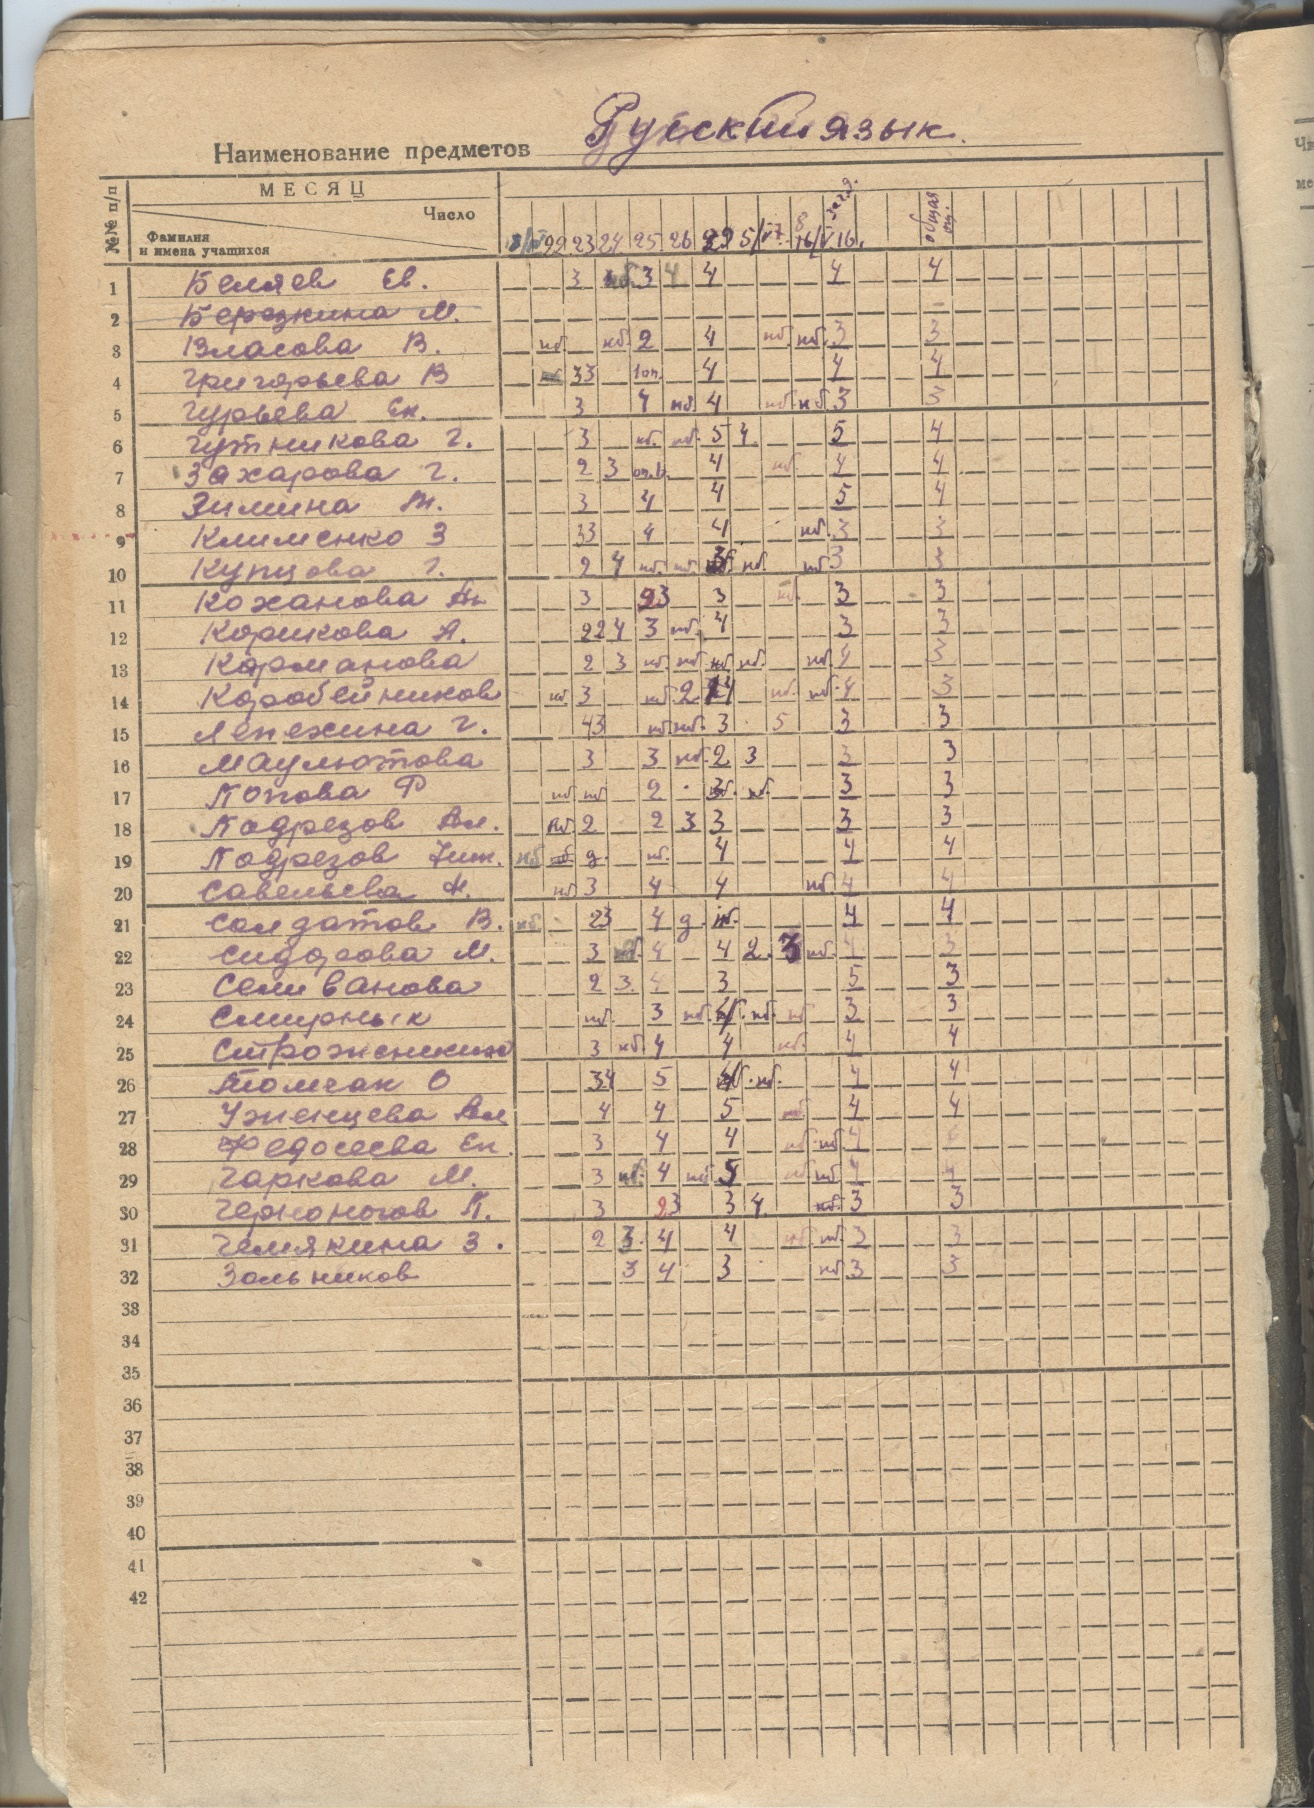 Наименование предметов Русский язык.
№№ п/п
МЕСЯЦ
Число
Фамилия и имена учащихся
22 23 24 25 26 29 5/VI 7. 8 16/V 16. общая оц.
1 Беляев Ев. 3 нб. 3 4 4 4 4
2 Березкина М. –
3 Власова В. нб. нб. 2 4 нб. нб. 3 3
4 Григорьева В 33 1оп. 4 4 4
5 Гурьева Ек. 3 4 нб. 4 нб. нб. 3 3
6 Гутникова Г. 3 нб. нб. 5 4. 5 4
7 Захарова Г. 2 3 4 нб. 4 4
8 Зимина 3 4 4 5 4
9 Клименко З 33 4 4 нб. 3 3
10 Купцова Г. 2 4 нб. нб. нб. нб 3 3
11 Коханова Ан 3 23 3 нб. 3 3
12 Корикова А. 224 3 нб. 4 3 3
13 Карманова 2 3 нб. нб. нб. нб. нб. 4 3
14 Коробейников нб. 3 нб. 2 4 нб. нб. 4 3
15 Лепехина Г. 43 нб. нб. 3 5 3 3
16 Маулютова 3 3 нб. 2 3 3 3
17 Попова Ф нб нб 2 нб. 3 3
18 Подрезов Вл. нб. 2 2 3 3 3 3
19 Подрезов нб нб д. нб. 4 4 4
20 Савельева Н. нб 3 4 4 нб 4 4
21 Солдатов В. нб. 23 4 д. нб. 4 4
22 Сидорова М. 3 нб. 4 4 2. 3 нб. 4 3
23 Селиванова 2 3. 4 3 5 3
24 Смирных нб. 3 нб. нб. нб 3 3
25 3 нб. 4 4 нб. 4 4
26 Томчак О 34 5 нб. 4 4
27 Уженцева Вл 4 4 5 нб 4 4
28 Федосеева Ек. 3 4 4 нб. нб 4
29 Чаркова М. 3 нб. 4 нб 5 нб нб. 4 4
30 Черноногов П. 3 23 3 4. нб. 3 3
31 Чемякина З. 2 3. 4 4 нб нб. 3 3
32 Зольников 3 4 3 нб 3 3
33
34
35
36
37
38
39
40
41
42